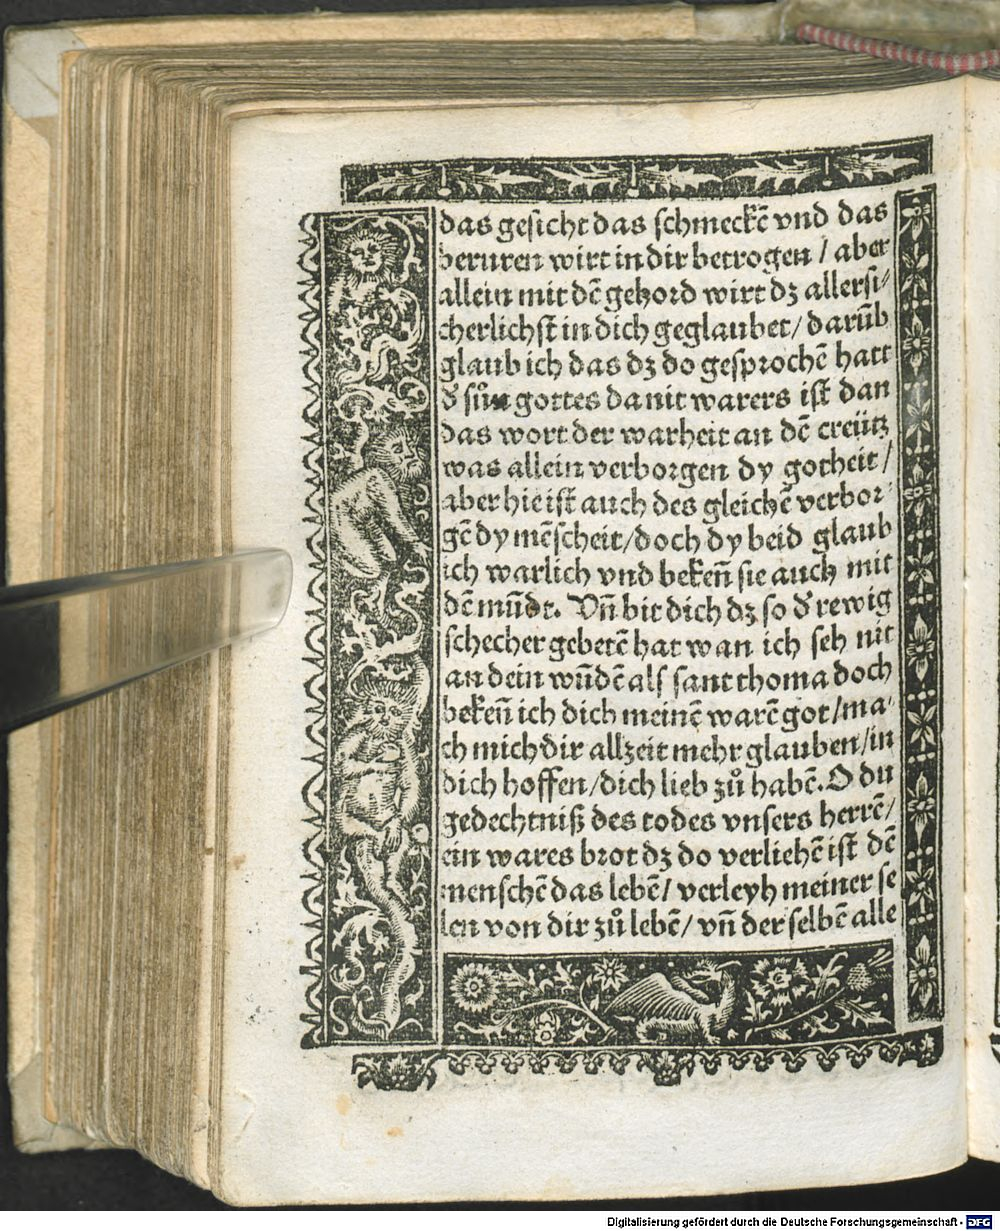 das gesicht das schmeckē vnd das
beruren wirt in dir betrogen / aber
allein mit dē gehord wirt dz allersi⸗
cherlichst in dich geglaubet / darūb
glaub ich das dz do gesprochē hatt
d̕ sůn gottes da nit warers ist dan
das wort der warheit an dē creütz
was allein verborgen dy gotheit /
aber hie ist auch des gleichē verbor⸗
gē dy mēscheit / doch dy beid glaub
ich warlich vnd bekeñ sie auch mit
dē mūdt. Vñ bit dich dz so d̕ rewig
schecher gebetē hat wan ich seh nit
an dein wūdē als sant thoma doch
bekeñ ich dich meinē warē got / ma⸗
ch mich dir allzeit mehr glauben / in
dich hoffen / dich lieb zů habē. O du
gedechtniß des todes vnsers herrē /
ein wares brot dz do verliehē ist dē
menschē das lebē / verleyh meiner se
len von dir zů lebē / vñ der selbē alle
Digitalisierung gefördert durch die Deutsche Forschungsgemeinschaft - DFG